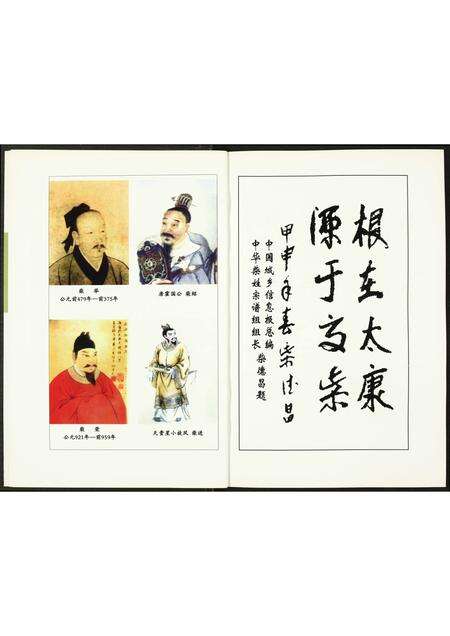 柴举
公元前479年—前375年
唐霍国公 柴绍
柴荣
公元921年—前959年
天贵星小旋风 柴进
根在太康
源于高柴
甲申年春柴德昌
中国城乡信息报总编
中华柴姓宗谱组组长 柴德昌题